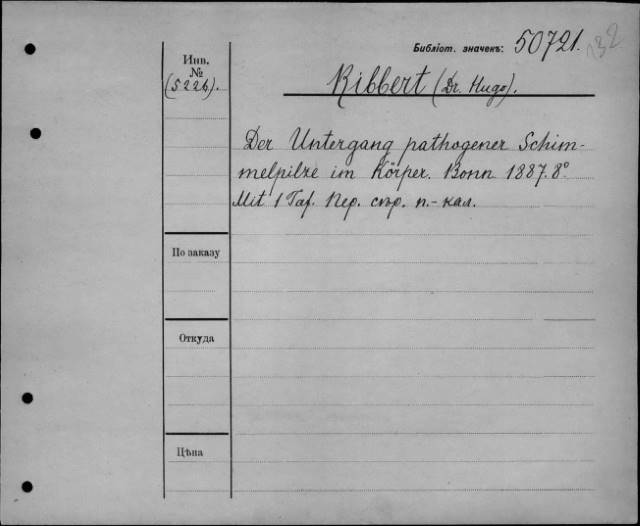 Библіот. значекъ: 50721. 132
Инв.
№
(5226).
Ribbert (Dr. Hugo).
Der Untergang pathogener Schim-
melpilze im Körper. Bonn 1887. 8°
Mit 1 Taf. Пер. стр. п.-кал.
По заказу
Откуда
Цѣна